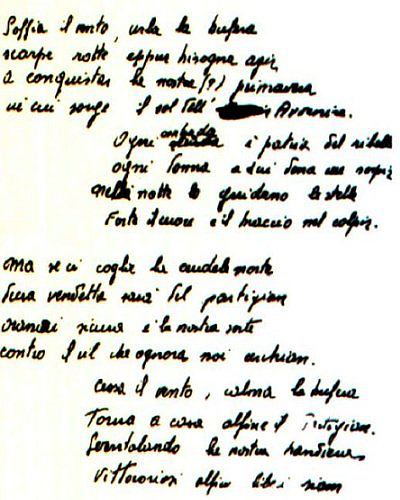 Soffia il vento, urla la bufera
scarpe rotte eppur bisogna agir
a conquistar la nostra (?) primavera
in cui sorge il sol dell' Avvenire.
Ogni contrada è patria del ribelle
ogni donna a lui dona un sospir
nella notte lo guidano le stelle
forte il cuore e il braccio nel colpir.
Ma se ci coglie la crudele morte
dura vendetta sarà del partigian
ormai sicura è la nostra sorte
contro il vil che ognora noi cerchiam.
Cessa il vento, calma la bufera
Torna a casa alfine il Partigian.
Sventolando la nostra bandiera
Vittoriosi alfin liberi siam